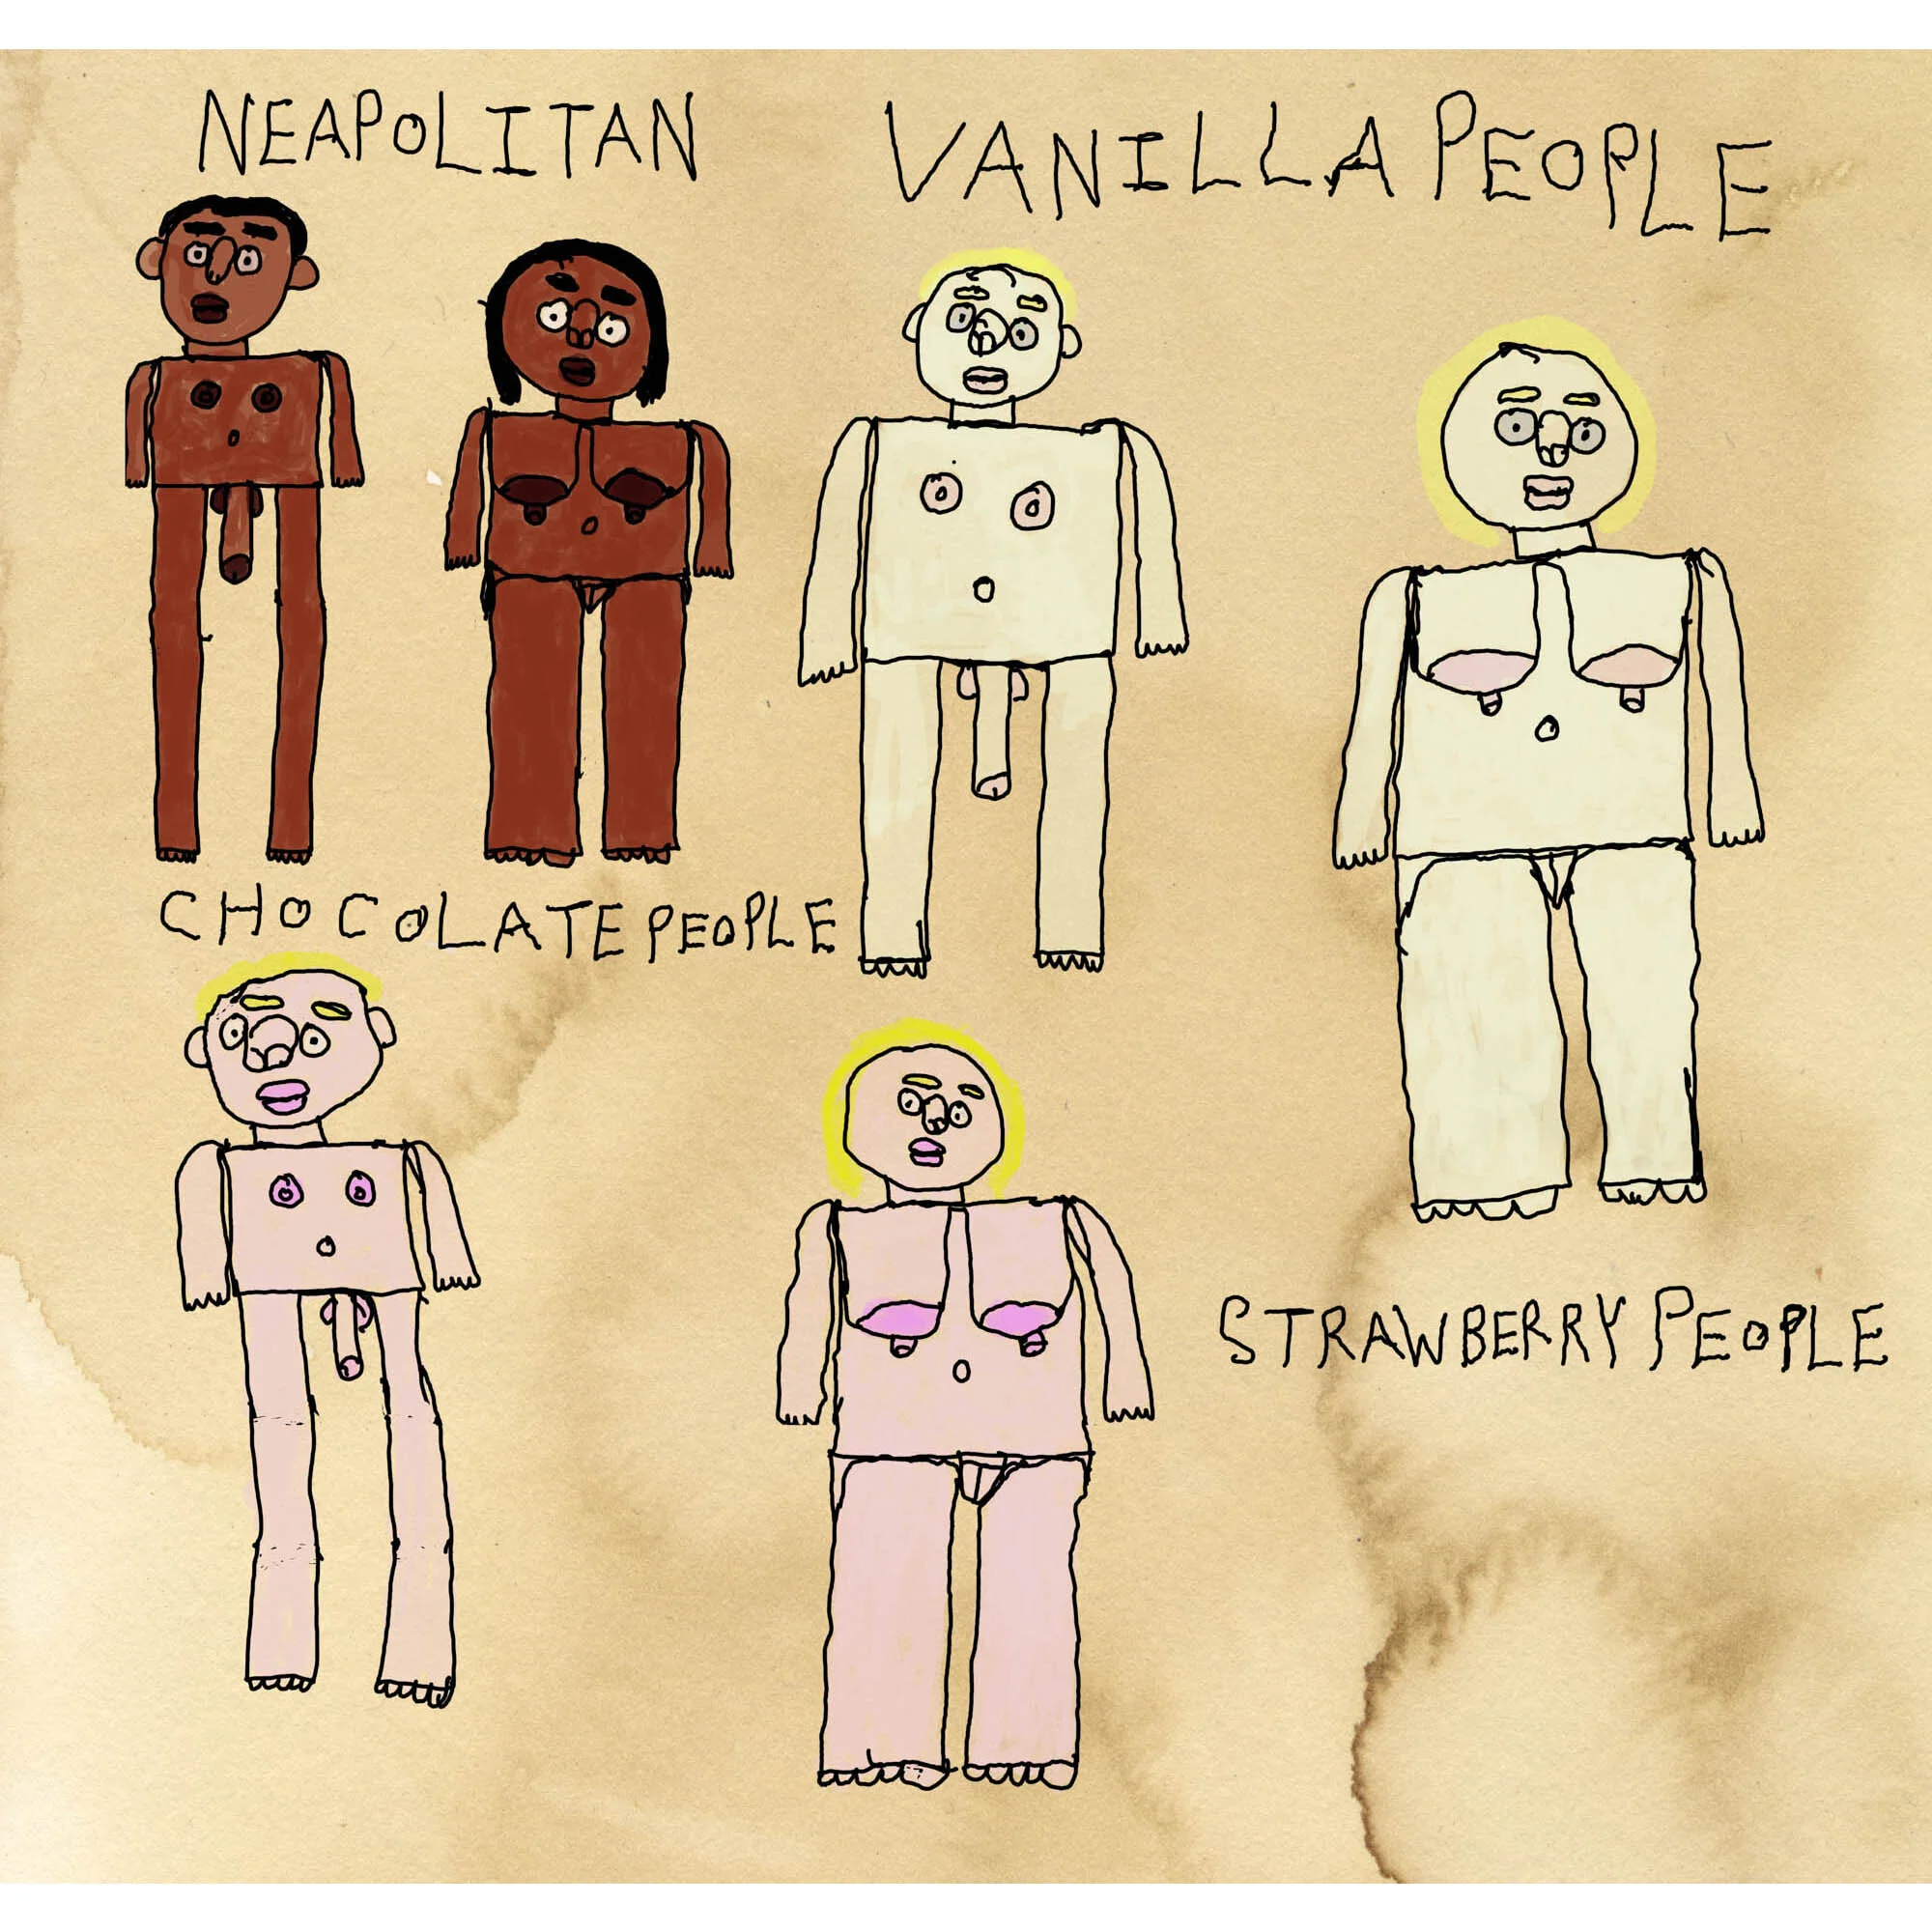 NEAPOLITAN
VANILLA PEOPLE
CHOCOLATE PEOPLE
STRAWBERRY PEOPLE